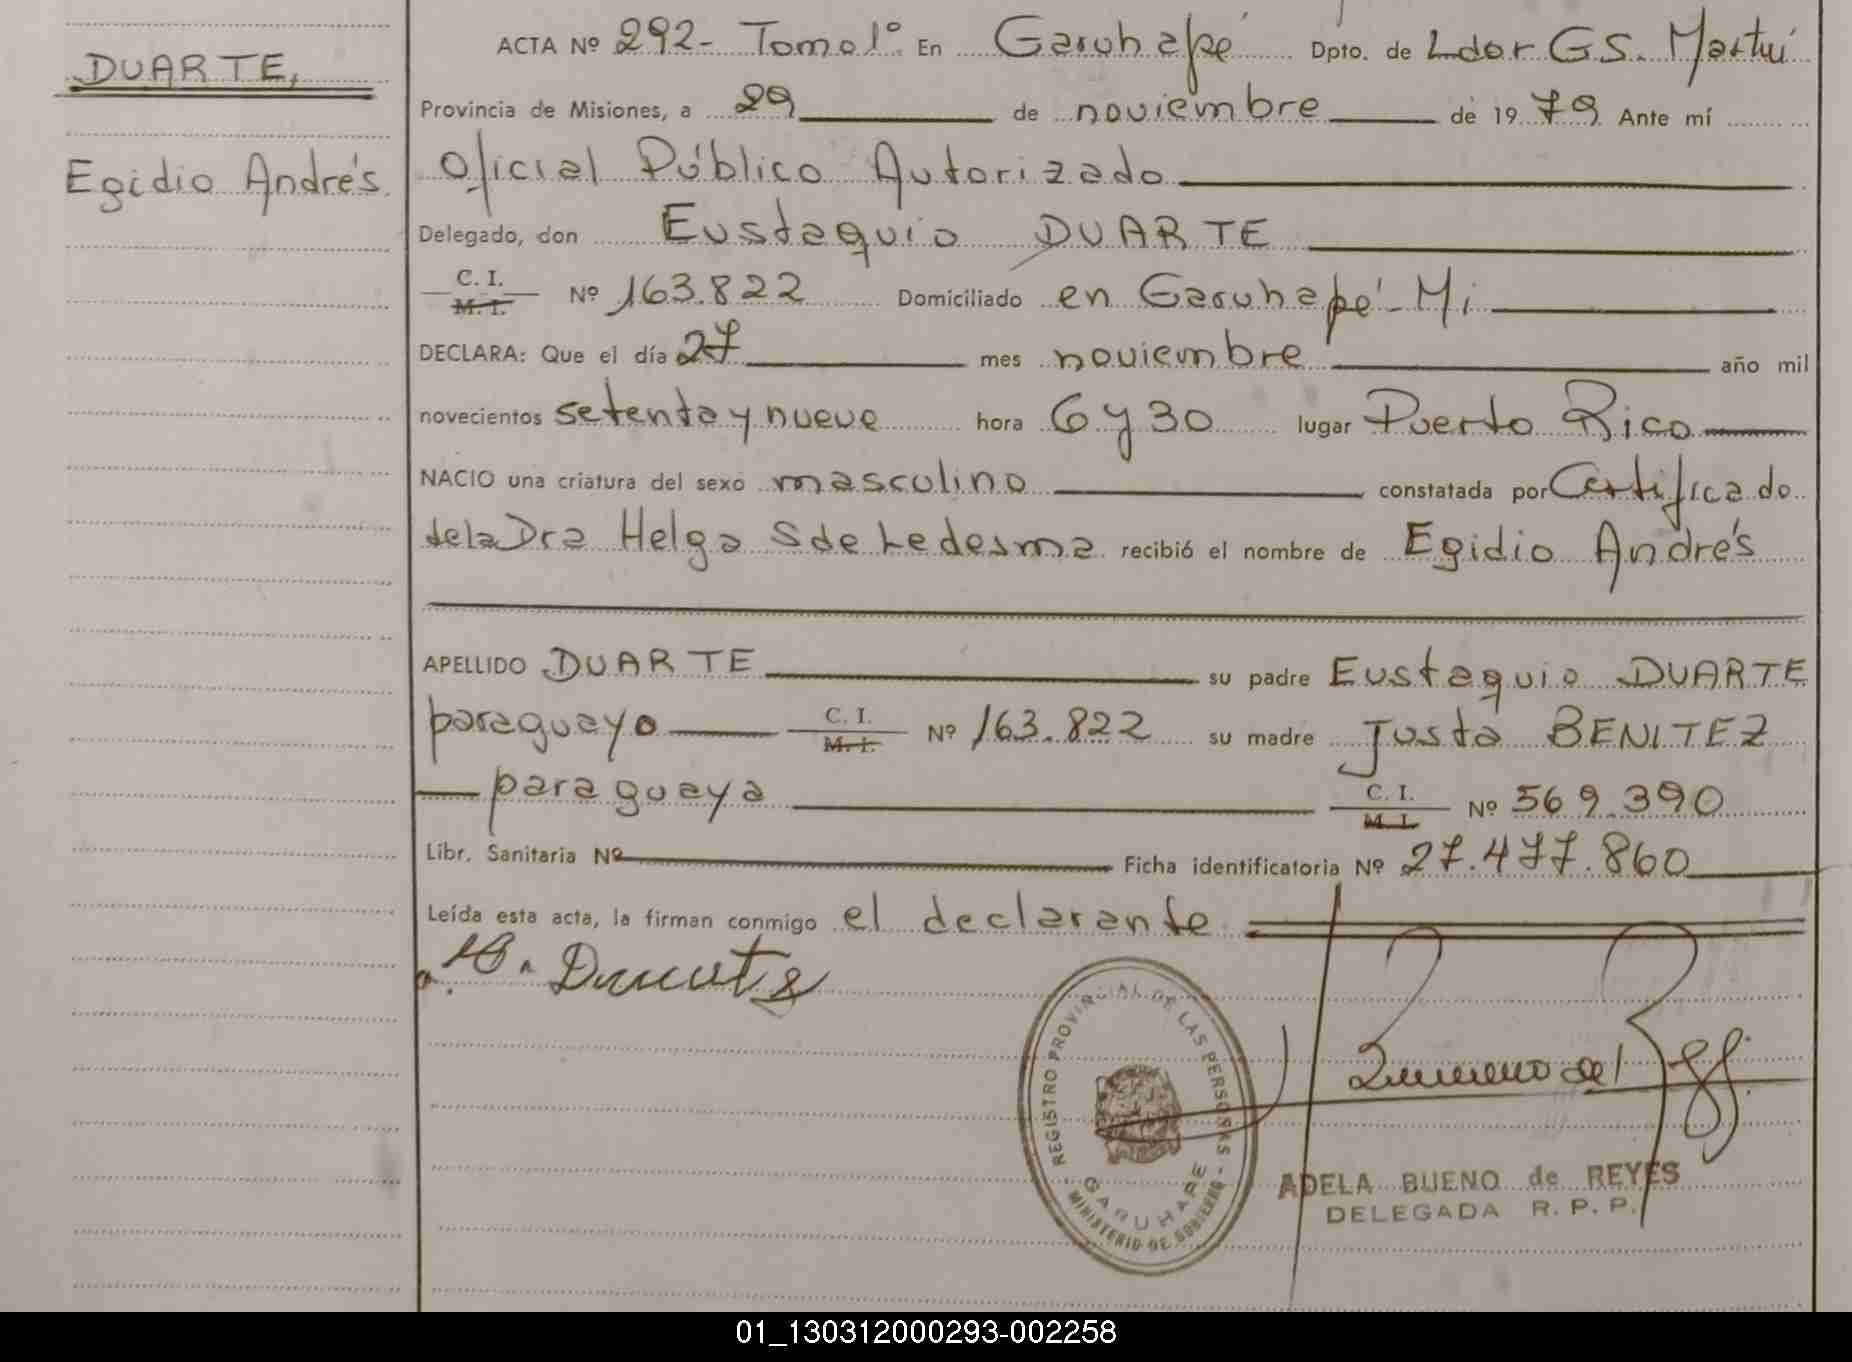 DUARTE,
Egidio Andrés
ACTA Nº 292- Tomo 1º En Garuhapé Dpto. de Ldor GS. Martín
Provincia de Misiones, a 29 de noviembre de 1979 Ante mí
Oficial Público Autorizado
Delegado, don Eustaquio DUARTE
C. I. M. I. Nº 163.822 Domiciliado en Garuhapé-Mi
DECLARA: Que el día 27 mes noviembre año mil
novecientos setenta y nueve hora 6 y 30 lugar Puerto Rico
NACIO una criatura del sexo masculino constatada por Certificado
de la Dra Helga S de Ledesma recibió el nombre de Egidio Andrés
APELLIDO DUARTE su padre Eustaquio DUARTE
paraguayo C. I. M. I. Nº 163.822 su madre Justa BENITEZ
paraguaya C. I. M. I. Nº 569.390
Libr. Sanitaria Nº Ficha identificatoria Nº 27.477.860
Leída esta acta, la firman conmigo el declarante
REGISTRO PROVINCIAL DE LAS PERSONAS - GARUHAPE
MINISTERIO DE GOBIERNO
ADELA BUENO de REYES
DELEGADA R. P. P.
01_130312000293-002258